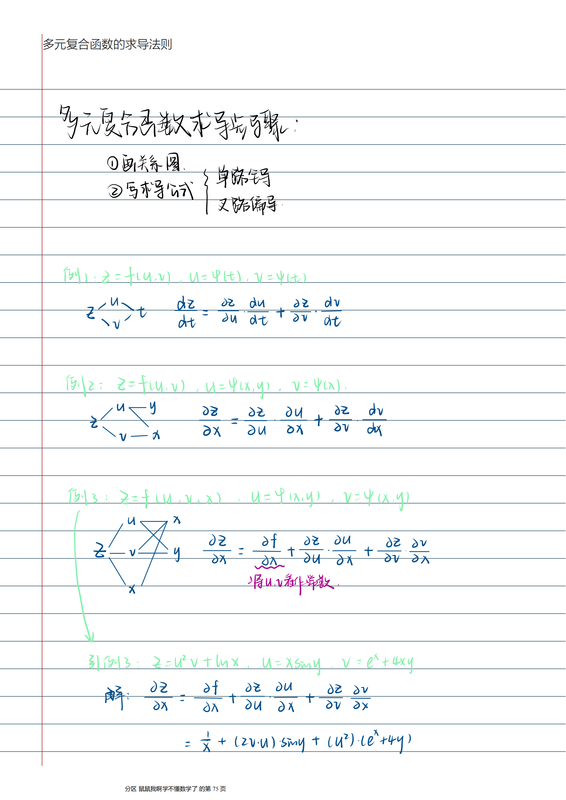 多元复合函数的求导法则
多元复合函数求导步骤:
①画关系图.
②写求导公式 { 单路全导
叉路偏导.
例1: z=f(u,v), u=φ(t), v=ψ(t)
z u v t dz/dt = ∂z/∂u · du/dt + ∂z/∂v · dv/dt
例2: z=f(u,v), u=φ(x,y), v=ψ(x).
z u y v x ∂z/∂x = ∂z/∂u · ∂u/∂x + ∂z/∂v · dv/dx
例3: z=f(u,v,x), u=φ(x,y), v=ψ(x,y)
z u v x x y ∂z/∂x = ∂f/∂x + ∂z/∂u · ∂u/∂x + ∂z/∂v · ∂v/∂x
将u.v看作常数.
例3: z=u²v+lnx, u=xsiny, v=eˣ+4xy
解: ∂z/∂x = ∂f/∂x + ∂z/∂u · ∂u/∂x + ∂z/∂v · ∂v/∂x
= 1/x + (2v·u)siny + (u²)·(eˣ+4y)
分区 鼠鼠我啊学不懂数学了 的第 75 页